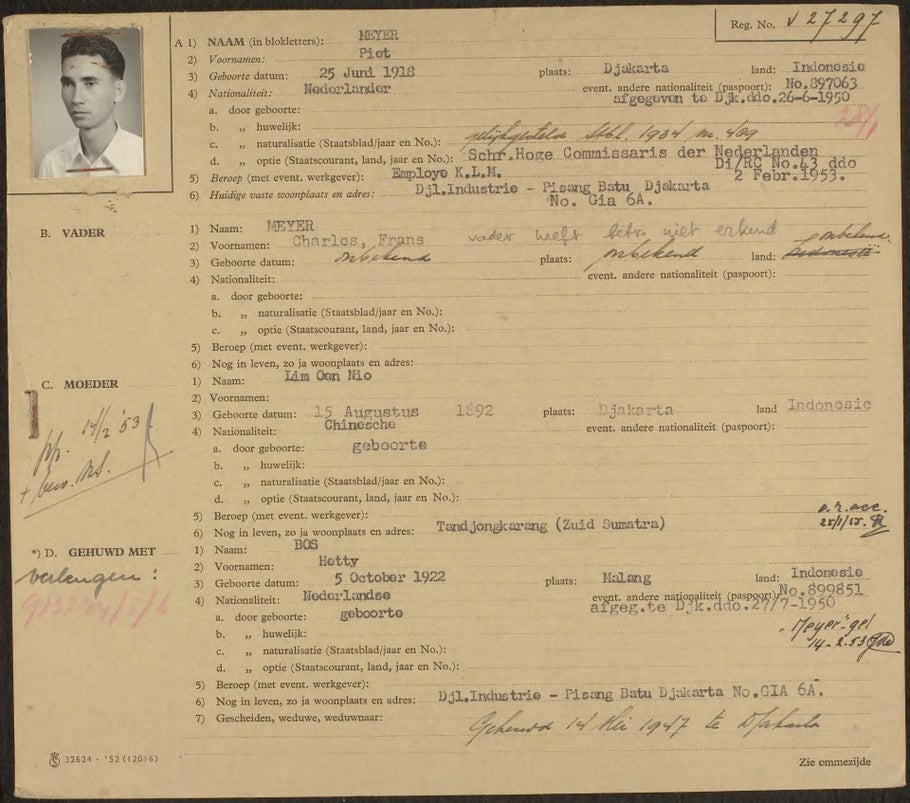 Reg. No. V 27297
A 1) NAAM (in blokletters): MEYER
2) Voornamen: Piet
3) Geboorte datum: 25 Juni 1918 plaats: Djakarta land: Indonesie
4) Nationaliteit: Nederlander event. andere nationaliteit (paspoort): No.897063
afgegeven te Djk.ddo.26-6-1950
a. door geboorte:
b. „ huwelijk:
c. „ naturalisatie (Staatsblad/jaar en No.): gelijkgesteld Stbl. 1934 no. 409
d. „ optie (Staatscourant, land, jaar en No.): Schr.Hoge Commissaris der Nederlanden
Di/RC No.43 ddo
5) Beroep (met event. werkgever): Employe K.L.M. 2 Febr.1953.
6) Huidige vaste woonplaats en adres: Djl.Industrie - Pisang Batu Djakarta
No. Gia 6A.
B. VADER
1) Naam: MEYER
2) Voornamen: Charles, Frans vader heeft betr. niet erkend
3) Geboorte datum: onbekend plaats: onbekend land: Indonesië onbekend
4) Nationaliteit: event. andere nationaliteit (paspoort):
a. door geboorte:
b. „ naturalisatie (Staatsblad/jaar en No.):
c. „ optie (Staatscourant, jaar en No.):
5) Beroep (met event. werkgever):
6) Nog in leven, zo ja woonplaats en adres:
C. MOEDER
1) Naam: Lim Oen Nio
2) Voornamen:
3) Geboorte datum: 15 Augustus 1892 plaats: Djakarta land Indonesie
4) Nationaliteit: Chinesche event. andere nationaliteit (paspoort):
a. door geboorte: geboorte
b. „ huwelijk:
c. „ naturalisatie (Staatsblad/jaar en No.):
d. „ optie (Staatscourant, land, jaar en No.):
5) Beroep (met event. werkgever):
6) Nog in leven, zo ja woonplaats en adres: Tandjongkarang (Zuid Sumatra)
pp. 14/2 '53
+ bew. NS.
*) D. GEHUWD MET
1) Naam: BOS
2) Voornamen: Hetty
3) Geboorte datum: 5 October 1922 plaats: Malang land: Indonesie
4) Nationaliteit: Nederlandse event. andere nationaliteit (paspoort) No.899851
afgeg.te Djk.ddo.27/7-1950
a. door geboorte: geboorte
b. „ huwelijk:
c. „ naturalisatie (Staatsblad/jaar en No.):
d. „ optie (Staatscourant, land, jaar en No.):
5) Beroep (met event. werkgever):
6) Nog in leven, zo ja woonplaats en adres: Djl.Industrie - Pisang Batu Djakarta No.GIA 6A.
7) Gescheiden, weduwe, weduwnaar:
Gehuwd 14 Mei 1947 te Djakarta
verlengen:
"Meyer" gel
14-2.53
32624 - '52 (12016)
Zie ommezijde